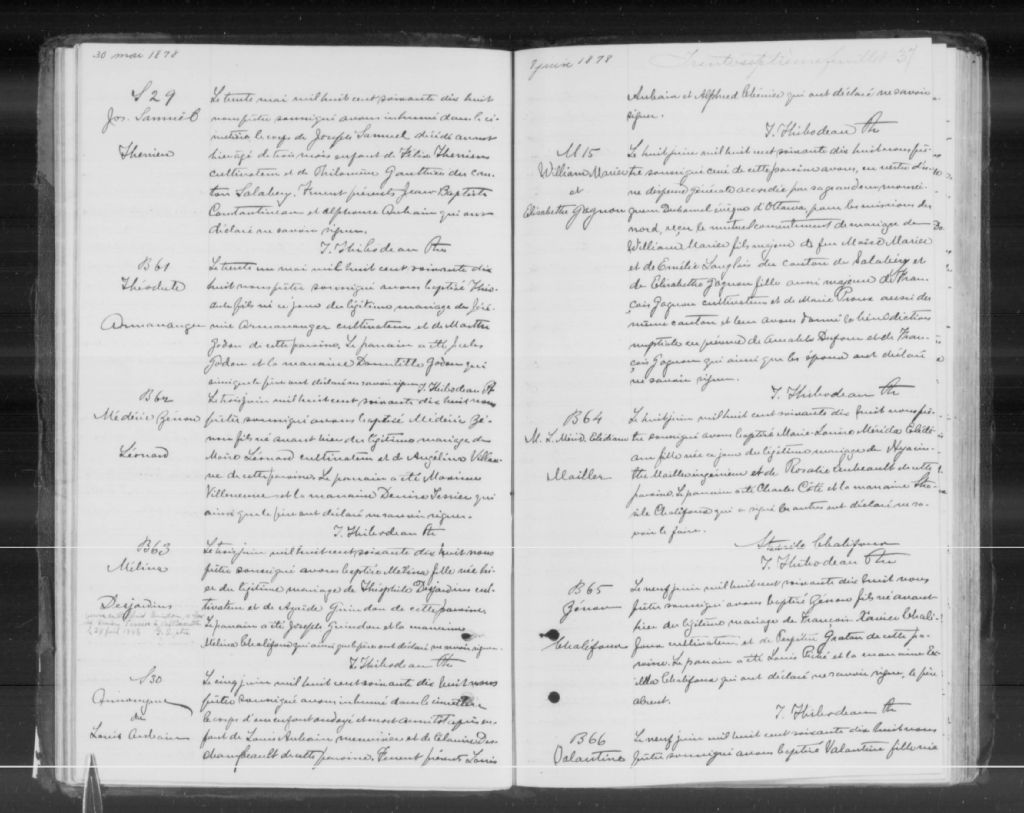 30 mai 1878
S 29
Jos. Samuel
Therrien
Le trente mai mil huit cent soixante dix huit
nous prêtre soussigné avons inhumé dans le ci-
metière le corps de Joseph Samuel décédé avant
hier âgé de trois mois enfant de Félix Therrien
cultivateur et de Philomène Gauthier du can-
ton Salabery. Furent présents Jean Baptiste
Constantineau et Alphonse Aubain qui ont
déclaré ne savoir signer.
T. Thibodeau Ptr
B 61
Théodule
Armananger
Le trente un mai mil huit cent soixante dix
huit nous prêtre soussigné avons baptisé Théo-
dule fils né ce jour du légitime mariage de Jéré-
mie Armananger cultivateur et de Marthe
Godon de cette paroisse. Le parrain a été Jules
Godon et la marraine Domitille Godon qui
ainsi que le père ont déclaré ne savoir signer. T. Thibodeau Pt
B 62
Médéric Zénon
Léonard
Le trois juin mil huit cent soixante dix huit nous
prêtre soussigné avons baptisé Médéric Zé-
non fils né avant hier du légitime mariage de
Moïse Léonard cultivateur et de Angélina Villeneu-
ve de cette paroisse. Le parrain a été Maxime
Villeneuve et la marraine Denise Tessier qui
ainsi que le père ont déclaré ne savoir signer.
T. Thibodeau Ptr
B 63
Mélina
Desjardins
Le trois juin mil huit cent soixante dix huit nous
prêtre soussigné avons baptisé Mélina fille née hi-
er du légitime mariage de Théophile Desjardins cul-
tivateur et de Agaïde Guindon de cette paroisse.
Le parrain a été Joseph Guindon et la marraine
Mélina Chalifoux qui ainsi que le père ont déclaré ne savoir signer.
T. Thibodeau Ptr
S 30
Anonyme
de
Louis Aubain
Le cinq juin mil huit cent soixante dix huit nous
prêtre soussigné avons inhumé dans le cimetière
le corps d'un enfant ondoyé et mort aussitôt après en-
fant de Louis Aubain menuisier et de Célanire Des
de cette paroisse. Furent présents Louis
8 juin 1878
Trente septième feuillet 37
Aubain et Alphred Chénier qui ont déclaré ne savoir
signer.
T. Thibodeau Ptr
M 15
William Marier
et
Elisabeth Gagnon
Le huit juin mil huit cent soixante dix huit nous prê-
tre soussigné curé de cette paroisse avons, en vertu d'u-
ne dispense générale accordée par sa grandeur monsei-
gneur Duhamel évêque d'Ottawa, pour les missions du
nord, reçu le mutuel consentement de mariage de
William Marier fils majeur de feu Moïse Marier
et de Emélie Langlois du canton de Salabéry et
de Elisabeth Gagnon fille aussi majeure de Fran-
çois Gagnon cultivateur et de Marie Proux aussi du
même canton et leur avons donné la bénédiction
nuptiale en présence de Amable Dufour et de Fran-
çois Gagnon qui ainsi que les époux ont déclaré
ne savoir signer.
T. Thibodeau Ptr
B 64
Mailler
Le huit juin mil huit cent soixante dix huit nous prê-
tre soussigné avons baptisé Marie Louise Mérida
fille née ce jour du légitime mariage de Hyacin-
the Mailler ingénieur et de Rosalie Archeault de cette
paroisse. Le parrain a été Charles Côté et la marraine
Chalifoux qui a signé les autres ont déclaré ne sa-
voir le faire.
Chalifoux
T. Thibodeau Ptr
B 65
Zénon
Chalifoux
Le neuf juin mil huit cent soixante dix huit nous
prêtre soussigné avons baptisé Zénon fils né avant
hier du légitime mariage de François Xavier Chali-
foux cultivateur et de Graton de cette pa-
roisse. Le parrain a été Louis Piché et la marraine
Chalifoux qui ont déclaré ne savoir signer, le père
absent.
T. Thibodeau Ptr
B 66
Valentine
Le neuf juin mil huit cent soixante dix huit nous
prêtre soussigné avons baptisé Valentine fille née